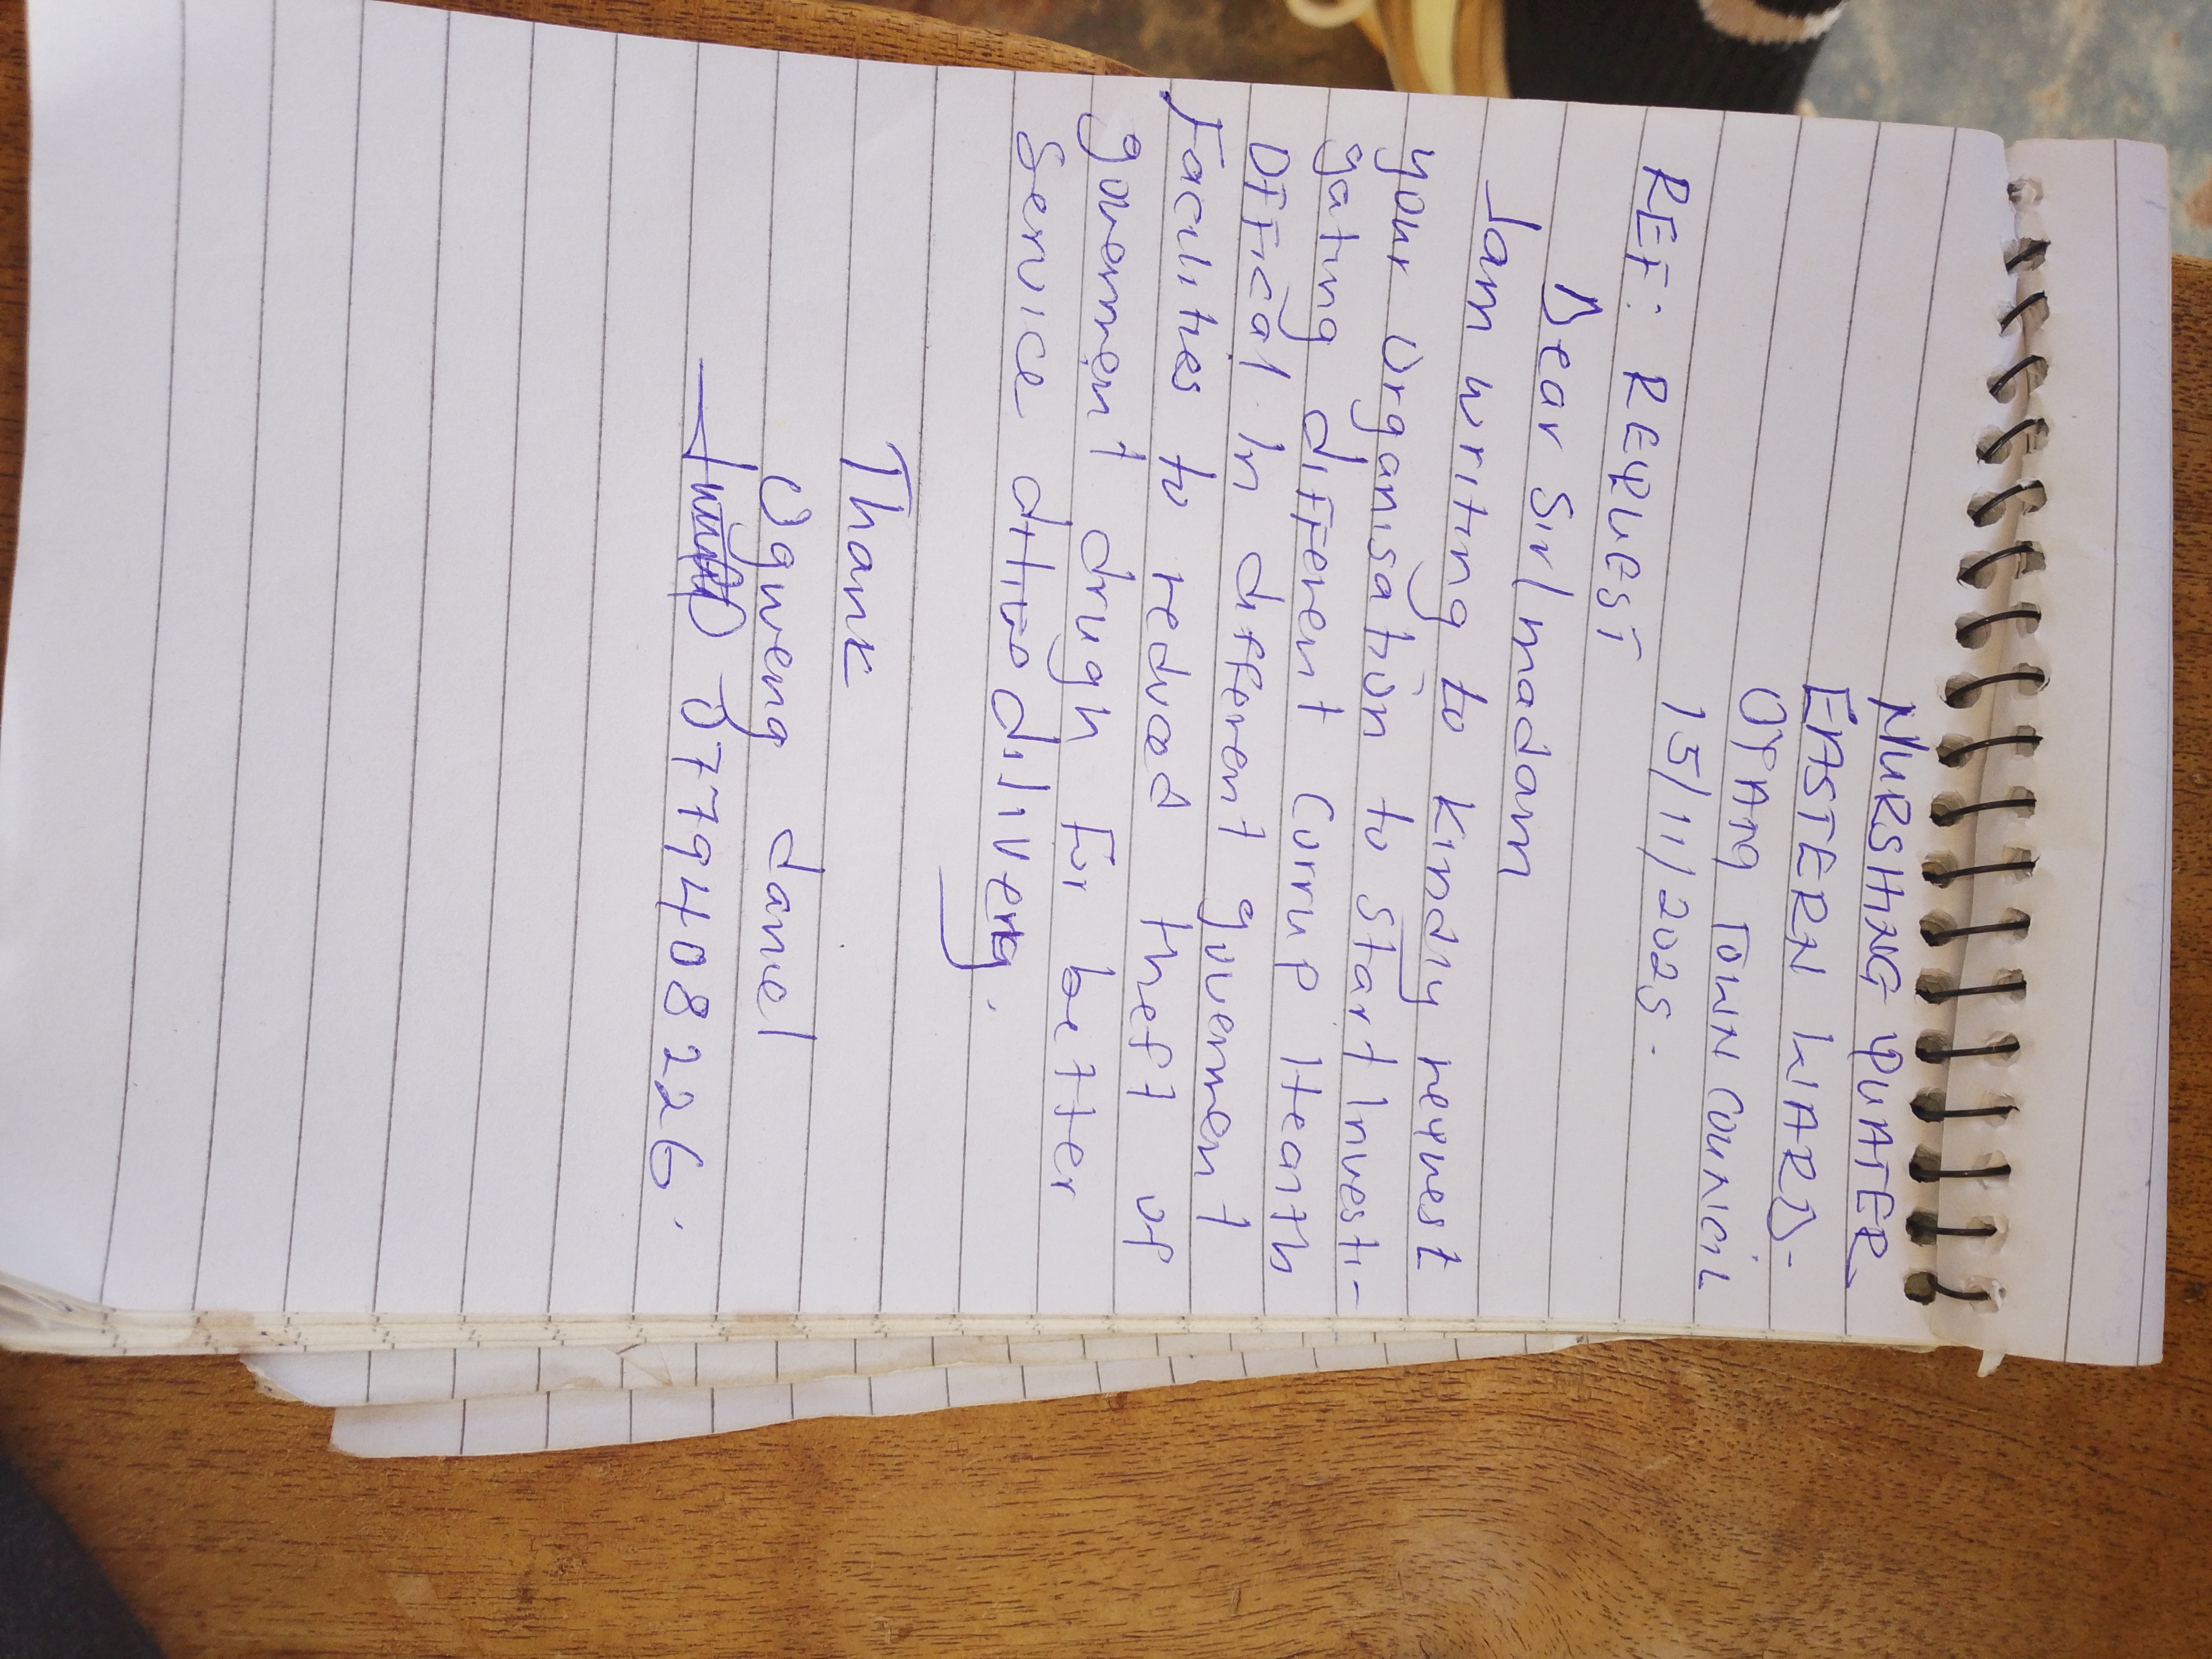 NURSHING QUATER
EASTERN WARD.
OYAM TOWN COUNCIL
15/11/2025.
REF: REQUEST
Dear Sir/madam
Iam writing to kindly request
your Organisation to start Investi-
gating different Corrup Health
Offical In different government
Facilities to reduced theft of
government drugh for better
Service dilivery.
Thank
Ogweng daniel
0779408226.